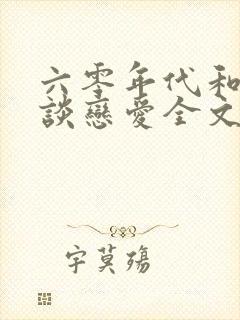 六零年代和
談戀愛全文
字莫殤